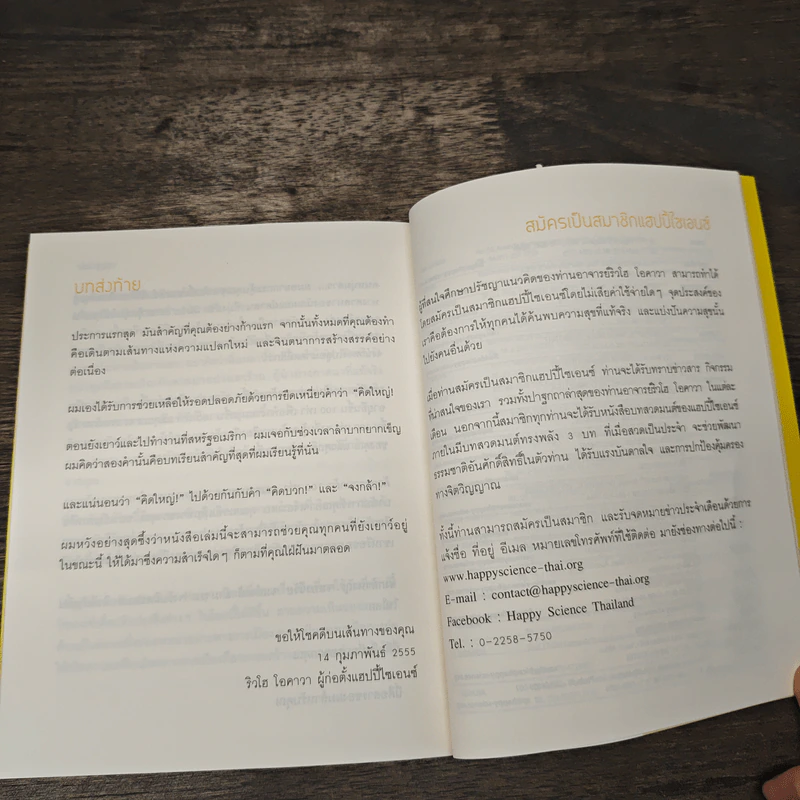 บทส่งท้าย
ประการแรกสุด มันสำคัญที่คุณต้องย่างก้าวแรก จากนั้นทั้งหมดที่คุณต้องทำ
คือเดินตามเส้นทางแห่งความแปลกใหม่ และจินตนาการสร้างสรรค์อย่าง
ต่อเนื่อง
ผมเองได้รับการช่วยเหลือให้รอดปลอดภัยด้วยการยึดเหนี่ยวคำว่า “คิดใหญ่!
ตอนยังเยาว์และไปทำงานที่สหรัฐอเมริกา ผมเจอกับช่วงเวลาลำบากยากเข็ญ
ผมคิดว่าสองคำนั้นคือบทเรียนสำคัญที่สุดที่ผมเรียนรู้ที่นั่น
และแน่นอนว่า “คิดใหญ่!” ไปด้วยกันกับคำ “คิดบวก!” และ “จงกล้า!”
ผมหวังอย่างสุดซึ้งว่าหนังสือเล่มนี้จะสามารถช่วยคุณทุกคนที่ยังเยาว์อยู่
ในขณะนี้ ให้ได้มาซึ่งความสำเร็จใดๆ ก็ตามที่คุณใฝ่ฝันมาตลอด
ขอให้โชคดีบนเส้นทางของคุณ
14 กุมภาพันธ์ 2555
ริวโฮ โอคาวา ผู้ก่อตั้งแฮปปี้ไซเอนซ์
สมัครเป็นสมาชิกแฮปปี้ไซเอนซ์
ผู้ที่สนใจศึกษาปรัชญาแนวคิดของท่านอาจารย์ริวโฮ โอคาวา สามารถทำได้
โดยสมัครเป็นสมาชิกแฮปปี้ไซเอนซ์โดยไม่เสียค่าใช้จ่ายใดๆ จุดประสงค์ของ
เราคือต้องการให้ทุกคนได้ค้นพบความสุขที่แท้จริง และแบ่งปันความสุขนั้น
ไปยังคนอื่นด้วย
เมื่อท่านสมัครเป็นสมาชิกแฮปปี้ไซเอนซ์ ท่านจะได้รับทราบข่าวสาร กิจกรรม
ที่น่าสนใจของเรา รวมทั้งปาฐกถาล่าสุดของท่านอาจารย์ริวโฮ โอคาวา ในแต่ละ
เดือน นอกจากนี้สมาชิกทุกท่านจะได้รับหนังสือบทสวดมนต์ของแฮปปี้ไซเอนซ์
ภายในมีบทสวดมนต์ทรงพลัง 3 บท ที่เมื่อสวดเป็นประจำ จะช่วยพัฒนา
ธรรมชาติอันศักดิ์สิทธิ์ในตัวท่าน ได้รับแรงบันดาลใจ และการปกป้องคุ้มครอง
ทางจิตวิญญาณ
ทั้งนี้ท่านสามารถสมัครเป็นสมาชิก และรับจดหมายข่าวประจำเดือนด้วยการ
แจ้งชื่อ ที่อยู่ อีเมล หมายเลขโทรศัพท์ที่ใช้ติดต่อ มายังช่องทางต่อไปนี้ :
www.happyscience-thai.org
E-mail : contact@happyscience-thai.org
Facebook : Happy Science Thailand
Tel. : 0-2258-5750